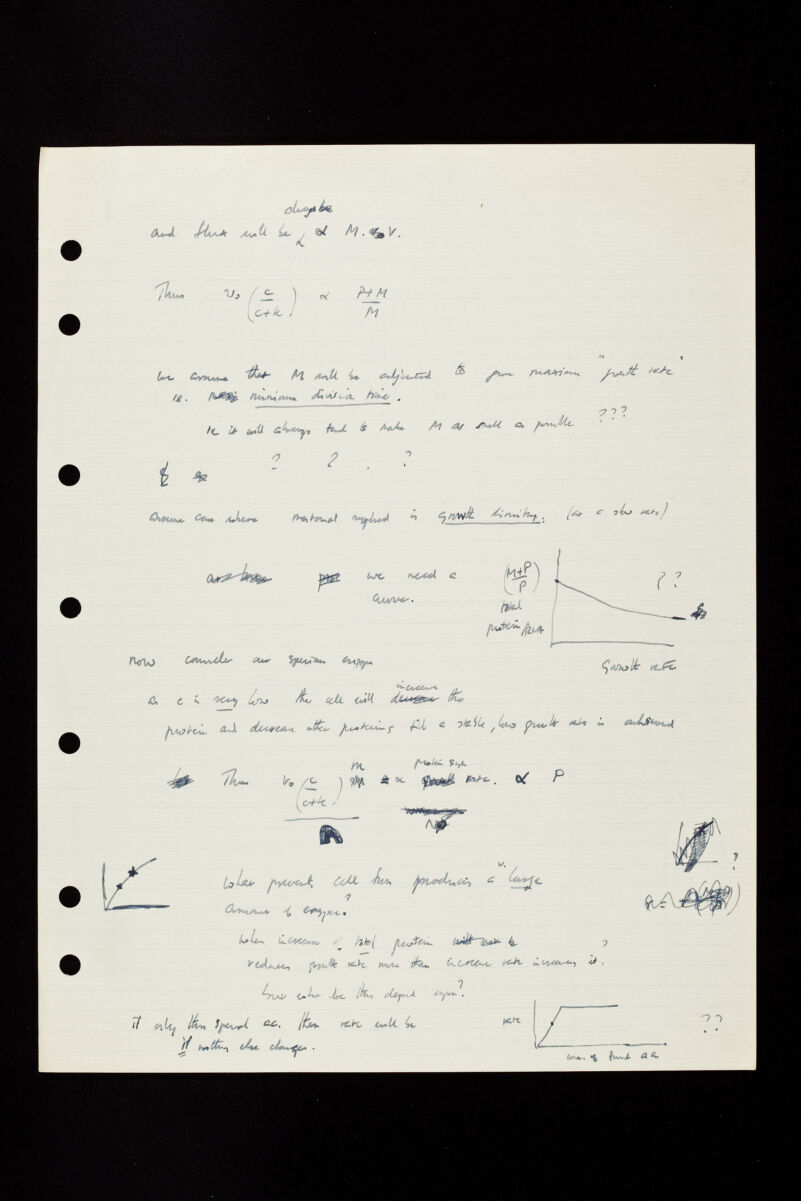 and flux will be ∝ M. V.
Thus v₀ (c/(c+k)) ∝ (P+M)/M
we assume that M will be adjusted to give maximum "growth rate"
ie. minimum division time.
ie it will always tend to make M as small as possible ???
? ? . ?
assume case where material supplied is growth limiting. (at a slow rate)
we need a
curve.
(M+P)/P
total
protein/RNA
? ?
Growth rate
now consider our special enzyme
as c is very low the cell will increase the
protein and decrease other proteins till a stable, low growth rate is achieved
Thus v₀ (c/(c+k)) m ∝ protein syn. rate. ∝ P
?
What prevents cell from producing a v. large
amount of enzyme?
when increase of total protein
reduces growth rate more than increase rate increases it. ?
but what does this depend upon?
if only this special aa. then rate will be
if nothing else changes.
rate
conc. of that aa
??